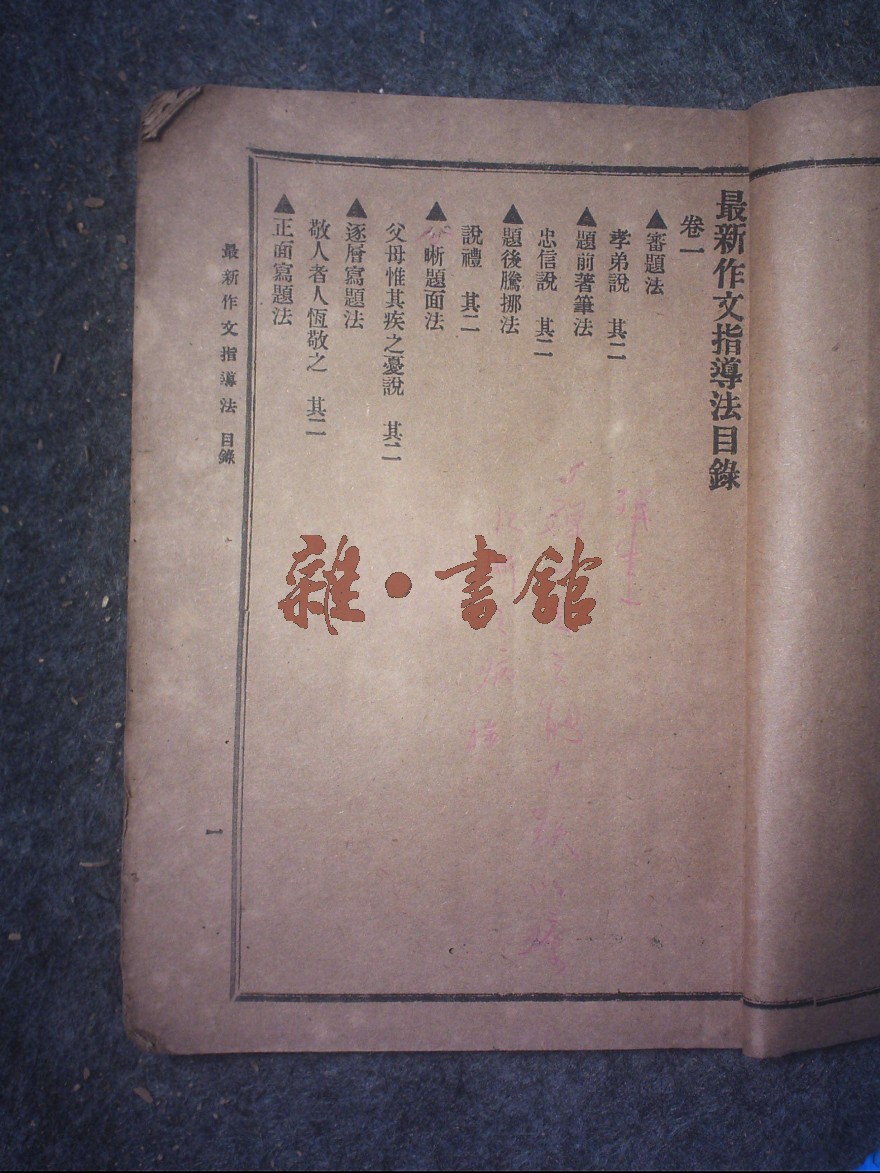 最新作文指導法目錄
卷一
▲審題法
孝弟說　其二
▲題前著筆法
忠信說　其二
▲題後騰挪法
說禮　其二
▲分晰題面法
父母惟其疾之憂說　其二
▲逐層寫題法
敬人者人恆敬之　其二
▲正面寫題法
最新作文指導法　目錄
一
雜·書館